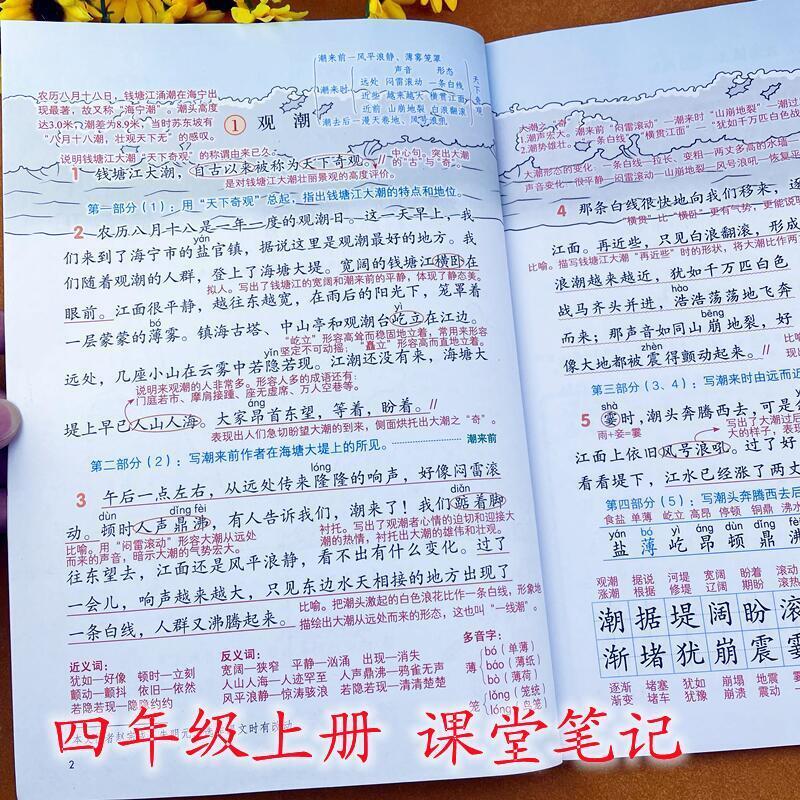 农历八月十八日，钱塘江涌潮在海宁出
现最著，故又称“海宁潮”。潮头高度
达3.0米，潮差为8.9米，当时苏东坡有
“八月十八潮，壮观天下无”的感叹。
潮来前—风平浪静、薄雾笼罩
声音 形态
潮来时
远处 闷雷滚动 一条白线
近些 越来越大 横贯江面
近前 山崩地裂 白浪翻滚
潮去后—漫天卷地、风号浪吼
天下奇观
1 观潮
说明钱塘江大潮“天下奇观”的称谓由来已久。
中心句。突出大潮
的“古”与“奇”。
1 钱塘江大潮，自古以来被称为天下奇观。
是对钱塘江大潮壮丽景观的高度评价。
第一部分（1）：用“天下奇观”总起，指出钱塘江大潮的特点和地位。
2 农历八月十八是一年一度的观潮日。这一天早上，我
yán
们来到了海宁市的盐官镇，据说这里是观潮最好的地方。我
们随着观潮的人群，登上了海塘大堤。宽阔的钱塘江横卧在
拟人。写出了钱塘江的宽阔和潮来前的平静，体现了静态美。
眼前。江面很平静，越往东越宽，在雨后的阳光下，笼罩着
bó
一层蒙蒙的薄雾。镇海古塔、中山亭和观潮台屹立在江边。
“屹立”形容高耸而稳固地立着，常用来形容
坚定不可动摇；“矗立”形容高而直地立着。
yǐn
远处，几座小山在云雾中若隐若现。江潮还没有来，海塘大
说明来观潮的人非常多。形容人多的成语还有：
门庭若市、摩肩接踵、座无虚席、万人空巷等。
堤上早已人山人海。大家昂首东望，等着，盼着。
表现出人们急切盼望大潮的到来，侧面烘托出大潮之“奇”。
第二部分（2）：写潮来前作者在海塘大堤上的所见。 潮来前
lóng
3 午后一点左右，从远处传来隆隆的响声，好像闷雷滚
dùn dǐng fèi diǎn
动。顿时人声鼎沸，有人告诉我们，潮来了！我们踮着脚
比喻。用“闷雷滚动”形容大潮从远处
而来的声音，暗示大潮的气势宏大。
衬托。写出了观潮者心情的迫切和迎接大
潮的热情，衬托出大潮的雄伟和壮观。
往东望去，江面还是风平浪静，看不出有什么变化。过了
一会儿，响声越来越大，只见东边水天相接的地方出现了
一条白线，人群又沸腾起来。
比喻。把潮头激起的白色浪花比作一条白线，形象地
描绘出大潮从远处而来的形态，这也叫“一线潮”。
近义词：
犹如—好像 顿时—立刻
颤动—颤抖 依旧—依然
若隐若现—隐隐约约
反义词：
宽阔—狭窄 平静—汹涌 出现—消失
人山人海—人迹罕至 人声鼎沸—鸦雀无声
风平浪静—惊涛骇浪 若隐若现—清清楚楚
多音字：
薄 bó（单薄）
báo（薄纸）
bò（薄荷）
笼 lǒng（笼统）
lóng（鸟笼）
2
4 那条白线很快地向我们移来，逐
“横贯”比“横卧”更有气势，更能说明
江面。再近些，只见白浪翻滚，形成
比喻。描写钱塘江大潮“再近些”时的形状，将大潮比作两丈
浪潮越来越近，犹如千万匹白色
战马齐头并进，浩浩荡荡地飞奔
bēng
而来；那声音如同山崩地裂，好
zhèn
像大地都被震得颤动起来。
第三部分（3、4）：写潮来时由远而近
shà
5 霎时，潮头奔腾西去，可是余
雨+妾=霎
江面上依旧风号浪吼。过了好
看看堤下，江水已经涨了两丈
第四部分（5）：写潮头奔腾西去后
食盐 单薄 屹立 高昂 停顿 铜鼎 沸水
yán bó yì áng dùn dǐng fèi
盐 薄 屹 昂 顿 鼎 沸
观潮 据说 河堤 宽阔 盼着 滚动
涨潮 根据 修堤 辽阔 期盼 滚热
潮 据 堤 阔 盼 滚
渐 堵 犹 崩 震 霎
逐渐 堵塞 犹如 崩塌 地震
渐变 堵车 犹豫 崩溃 震动
四年级上册 课堂笔记